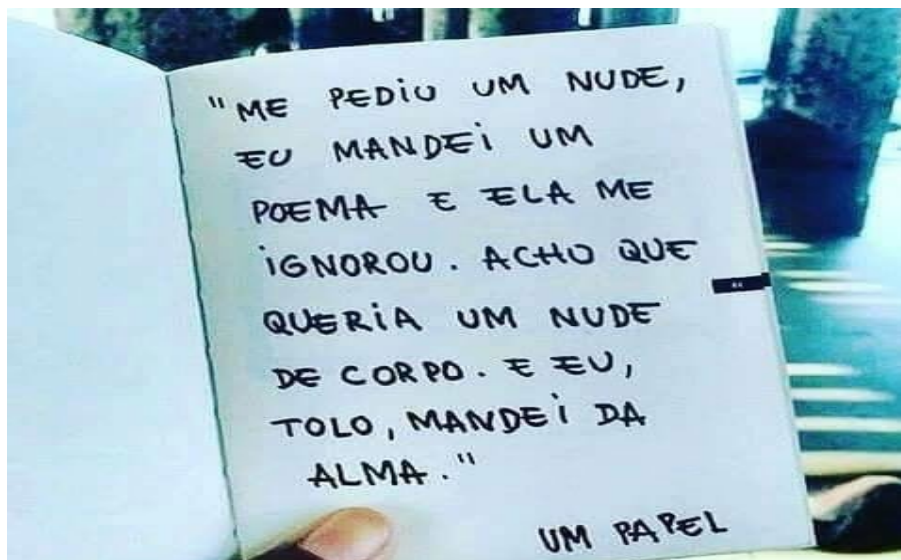 "ME PEDIU UM NUDE,
EU MANDEI UM
POEMA E ELA ME
IGNOROU. ACHO QUE
QUERIA UM NUDE
DE CORPO. E EU,
TOLO, MANDEI DA
ALMA."
UM PAPEL